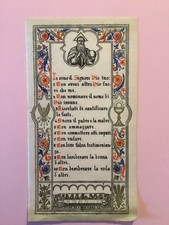 Io sono il Signore Dio tuo:
Non avrai altro Dio fuori che me.
Non nominare il nome di Dio invano.
Ricordati di santificare le feste.
Onora il padre e la madre
Non ammazzare.
Non commettere atti impuri
Non rubare.
Non dire falsa testimonianza.
Non desiderare la donna d'altri.
Non desiderare la roba d'altri.